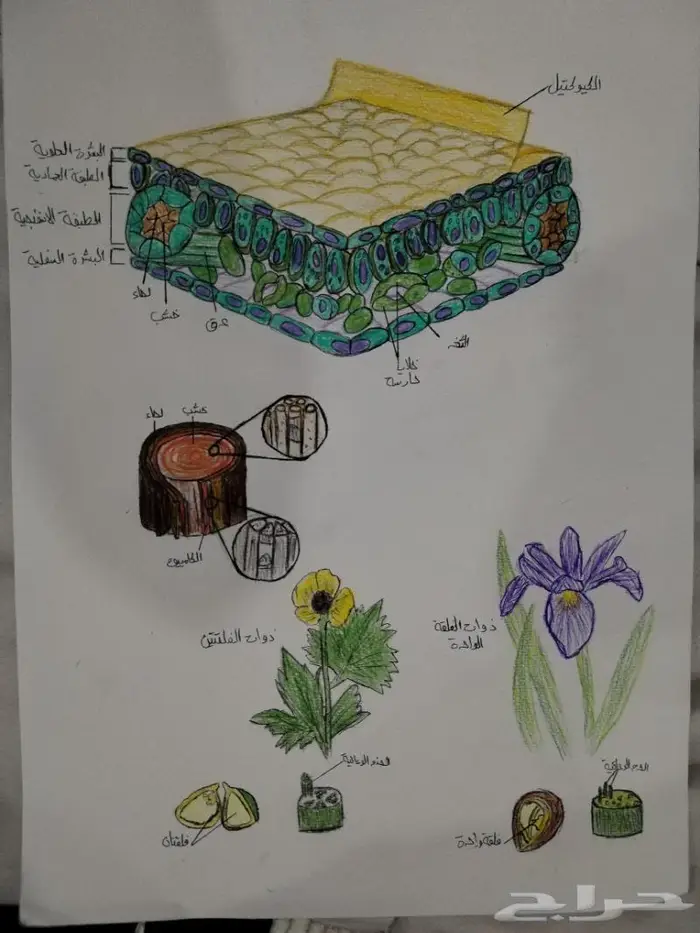 الكيوكتيل
البشرة العلوية
الطبقة العمادية
الطبقة الاسفنجية
البشرة السفلية
لحاء
خشب
عرق
خلايا
حارسة
لحاء
خشب
الكامبيوم
ذوات الفلقتين
ذوات الفلقة
الواحدة
الحزم الوعائية
الحزم الوعائية
فلقتان
فلقة واحدة
حراج